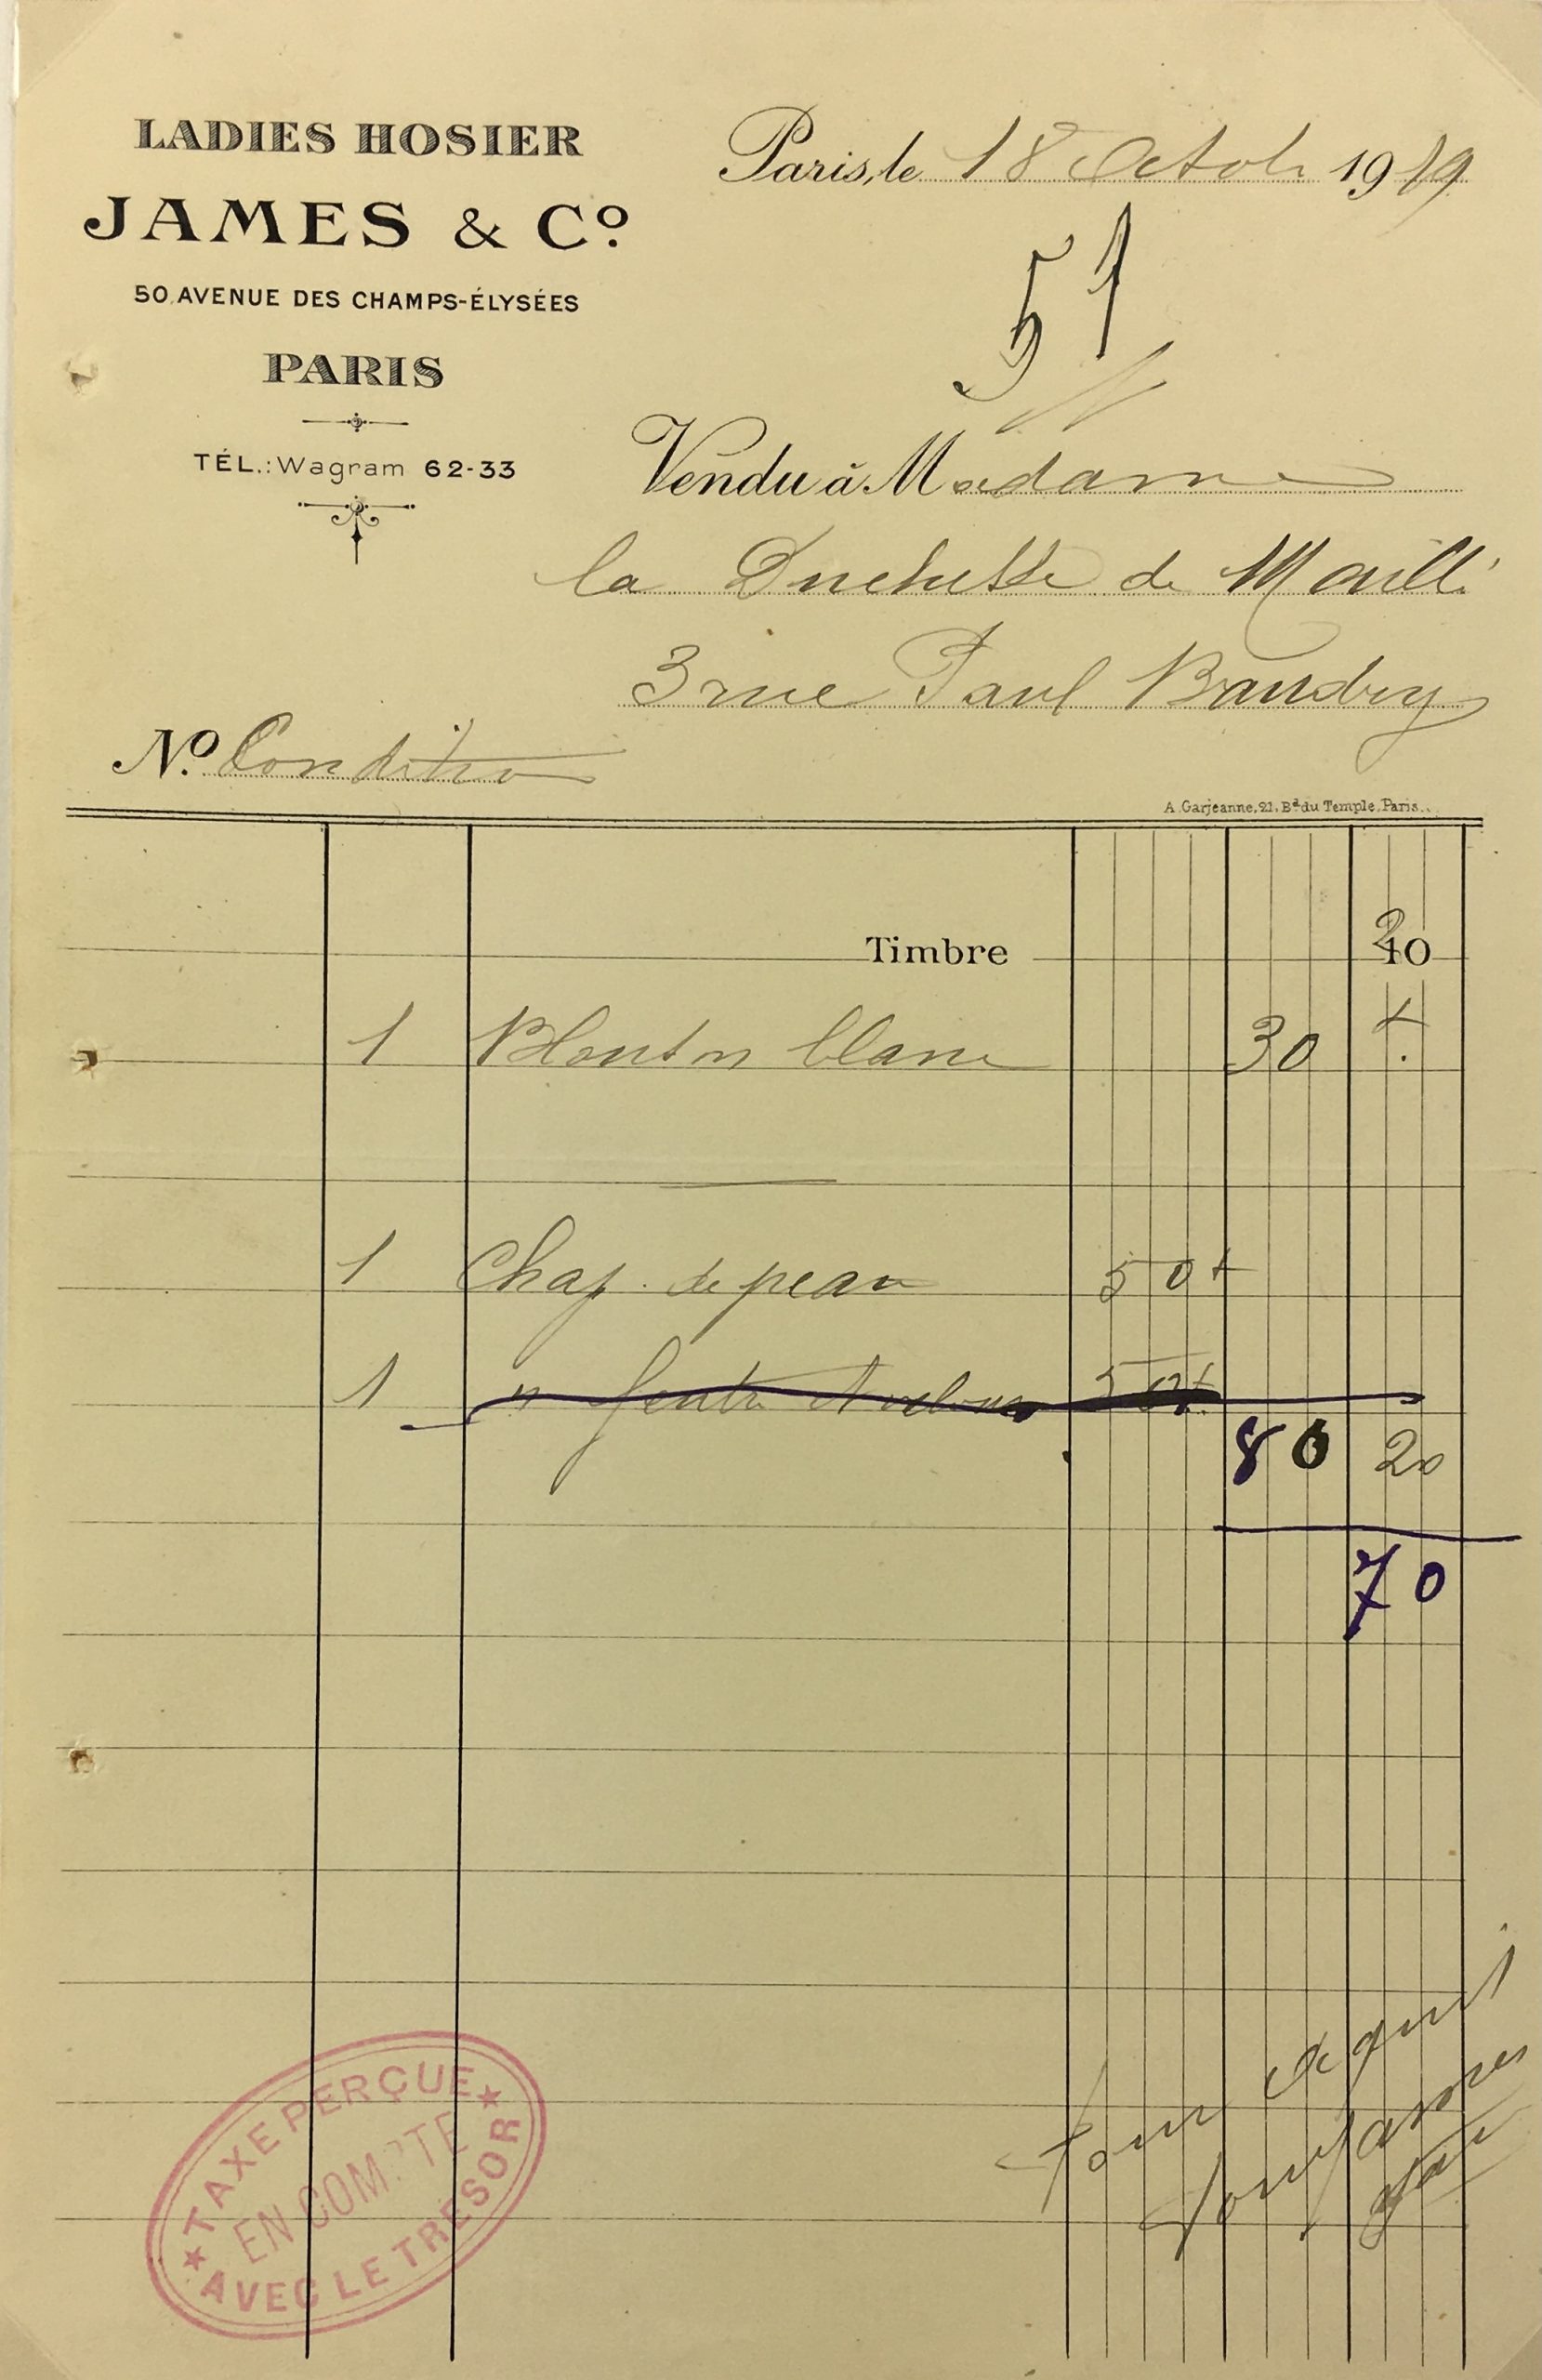 LADIES HOSIER
JAMES & Cº
50, AVENUE DES CHAMPS-ÉLYSÉES
PARIS
TÉL.: Wagram 62-33
Paris, le 18 Octob 1919
51
Vendu à Madame
la Duchesse de Maillé
3 rue Paul Baudry
Nº Condition
A. Garjeanne, 21, Bd du Temple, Paris.
Timbre 20
1 blanc 30
1 Chap. de peau 50
1 " feutre et velours 50
80 20
70
Pour acquit
TAXE PERÇUE
EN COMPTE
AVEC LE TRÉSOR